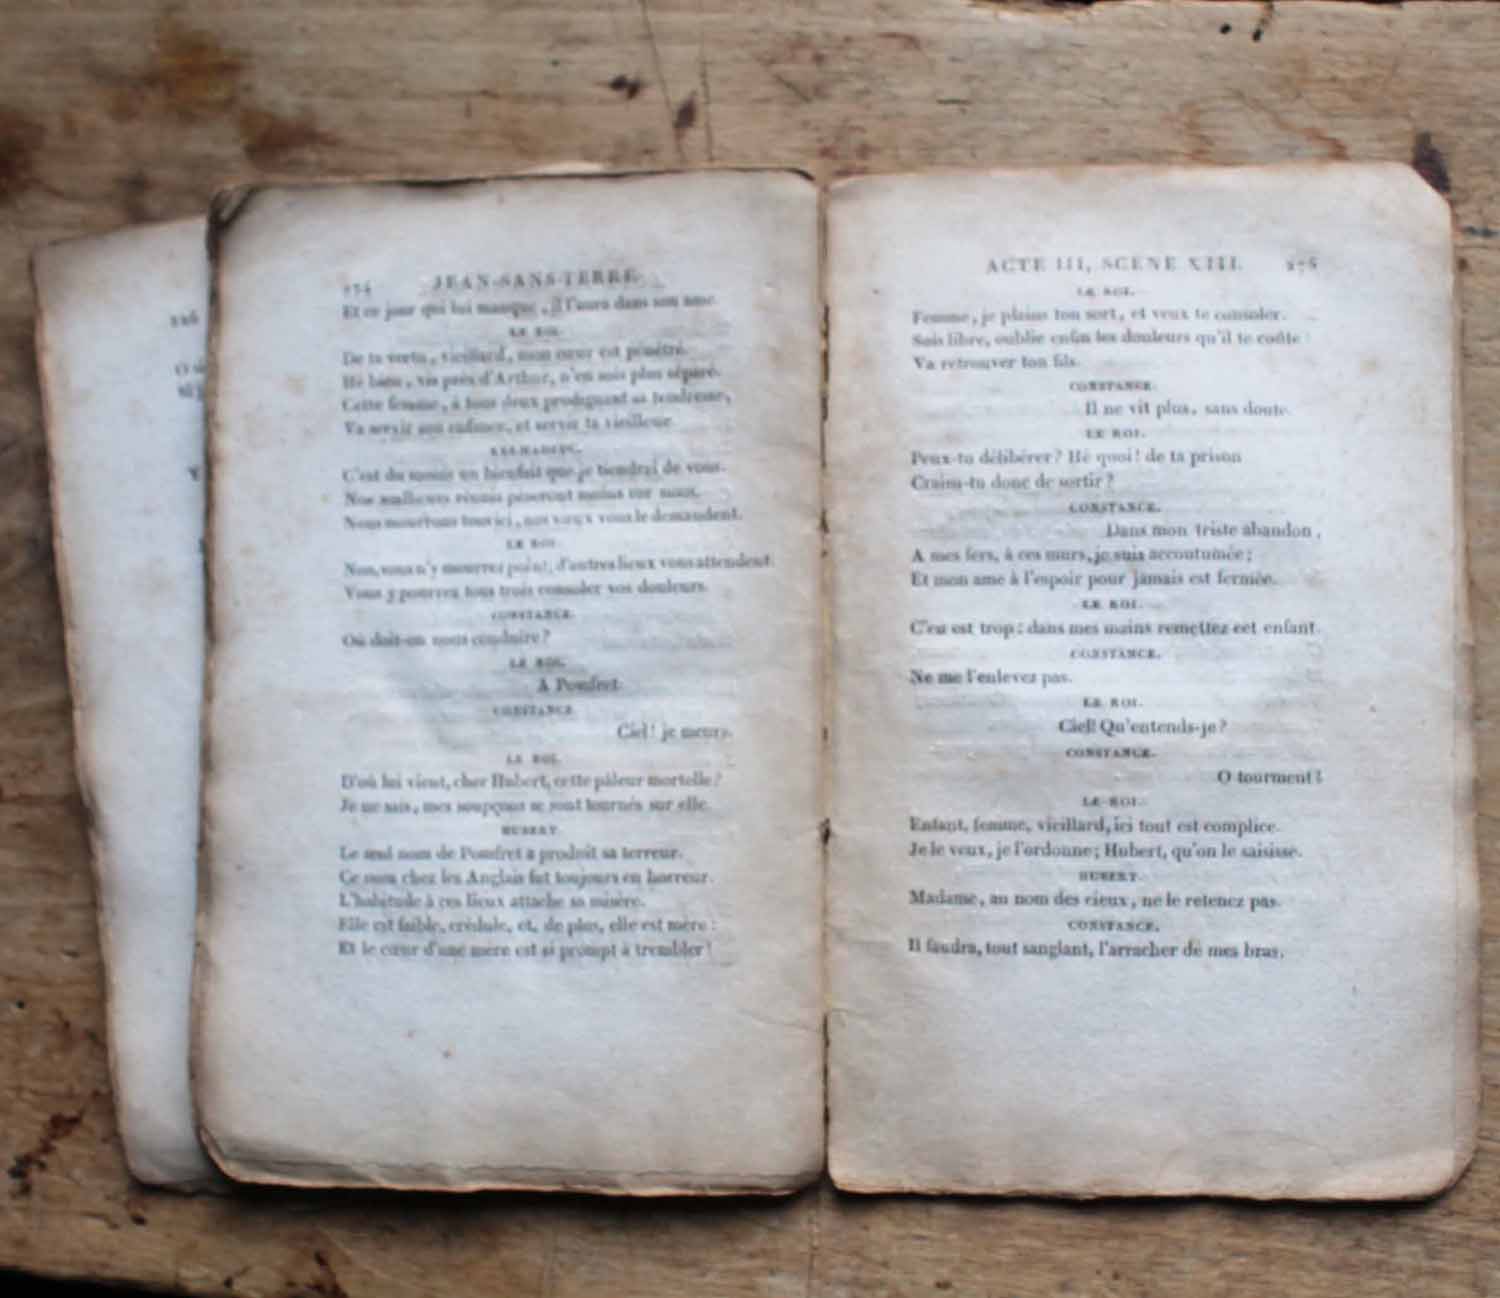 226
O
274 JEAN-SANS-TERRE.
Et ce jour qui lui manque, il l'aura dans son ame.
LE ROI.
De ta vertu, vieillard, mon cœur est pénétré.
Hé bien, vis près d'Arthur, n'en sois plus séparé.
Cette femme, à tous deux prodiguant sa tendresse,
Va servir son enfance, et servir ta vieillesse.
KERMADEUC.
C'est du moins un bienfait que je tiendrai de vous.
Nos malheurs réunis pèseront moins sur nous.
Nous mourrons tous ici, nos vœux vous le demandent.
LE ROI.
Non, vous n'y mourrez point, d'autres lieux vous attendent.
Vous y pourrez tous trois consoler vos douleurs.
CONSTANCE.
Où doit-on nous conduire?
LE ROI.
A Pomfret.
CONSTANCE.
Ciel! je meurs.
LE ROI.
D'où lui vient, cher Hubert, cette pâleur mortelle?
Je ne sais, mes soupçons se sont tournés sur elle.
HUBERT.
Le seul nom de Pomfret a produit sa terreur.
Ce nom chez les Anglais fut toujours en horreur.
L'habitude à ces lieux attache sa misère.
Elle est faible, crédule, et, de plus, elle est mère:
Et le cœur d'une mère est si prompt à trembler!
ACTE III, SCENE XIII. 275
LE ROI.
Femme, je plains ton sort, et veux te consoler.
Sois libre, oublie enfin les douleurs qu'il te coûte:
Va retrouver ton fils.
CONSTANCE.
Il ne vit plus, sans doute.
LE ROI.
Peux-tu délibérer? Hé quoi! de ta prison
Crains-tu donc de sortir?
CONSTANCE.
Dans mon triste abandon,
A mes fers, à ces murs, je suis accoutumée;
Et mon ame à l'espoir pour jamais est fermée.
LE ROI.
C'en est trop: dans mes mains remettez cet enfant.
CONSTANCE.
Ne me l'enlevez pas.
LE ROI.
Ciel! Qu'entends-je?
CONSTANCE.
O tourment!
LE ROI.
Enfant, femme, vieillard, ici tout est complice.
Je le veux, je l'ordonne; Hubert, qu'on le saisisse.
HUBERT.
Madame, au nom des cieux, ne le retenez pas.
CONSTANCE.
Il faudra, tout sanglant, l'arracher de mes bras.